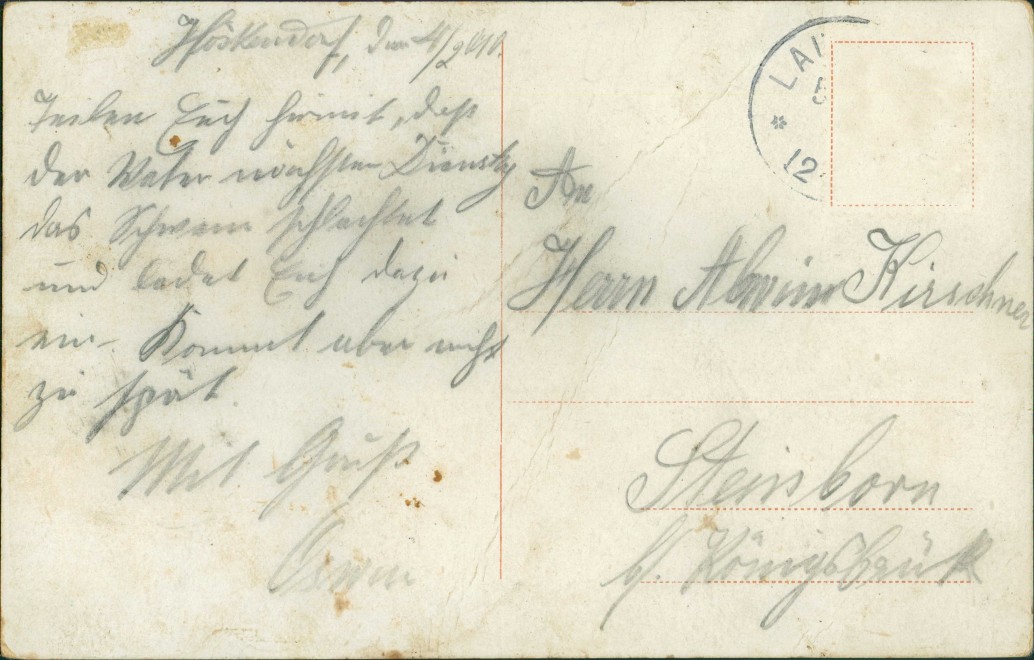 Höckendorf, den 4/2 1910.
Teilen Euch hiermit, daß
der Vater nächsten Dienstg
das Schwein schlachtet
und ladet Euch dazu
ein. Kommt aber nicht
zu spät.
Mit Gruß
LAU
5
* 12
An
Herrn Alwin Kirschner
Steinborn
b/. Königsbrük